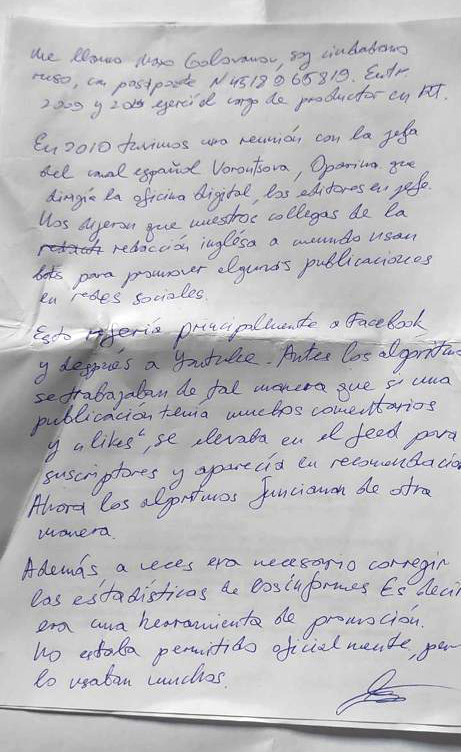 Me llamo Max Golovanov, soy ciudadano
ruso, con pasaporte N 4518965819. Entre
2009 y ejercí el cargo de productor en RT.
En 2010 tuvimos una reunión con la jefa
del canal español Vorontsova, Oparina, que
dirigía la oficina digital, los editores en jefe.
Nos dijeron que nuestros collegas de la
redacción inglésa a menudo usan
bots para promover algunas publicaciones
en redes sociales.
Esto refería principalmente a Facebook
y después a Youtube. Antes los algoritmo
se trabajaban de tal manera que si una
publicación tenía muchos comentarios
y "likes", se elevaba en el feed para
suscriptores y aparecía en recomendacio
Ahora los algoritmos funcionan de otra
manera.
Además a veces era necesario corregir
las estadísticas de los informes Es decir
era una herramienta de promoción.
No estaba permitido oficialmente, pero
lo usaban muchos.